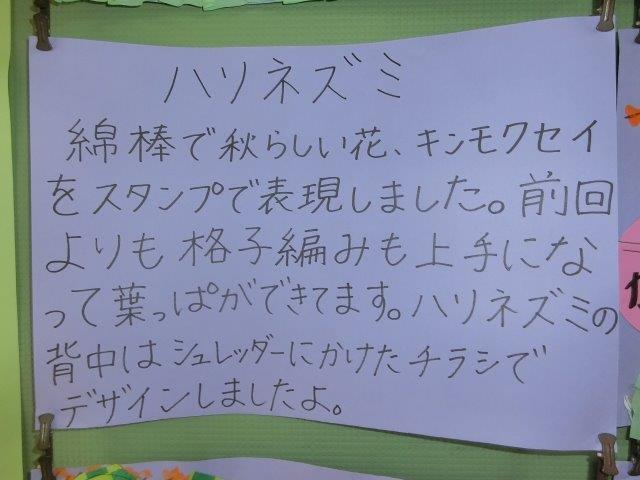 ハリネズミ
綿棒で秋らしい花、キンモクセイ
をスタンプで表現しました。前回
よりも格子編みも上手にな
って葉っぱができてます。ハリネズミの
背中はシュレッダーにかけたチラシで
デザインしましたよ。